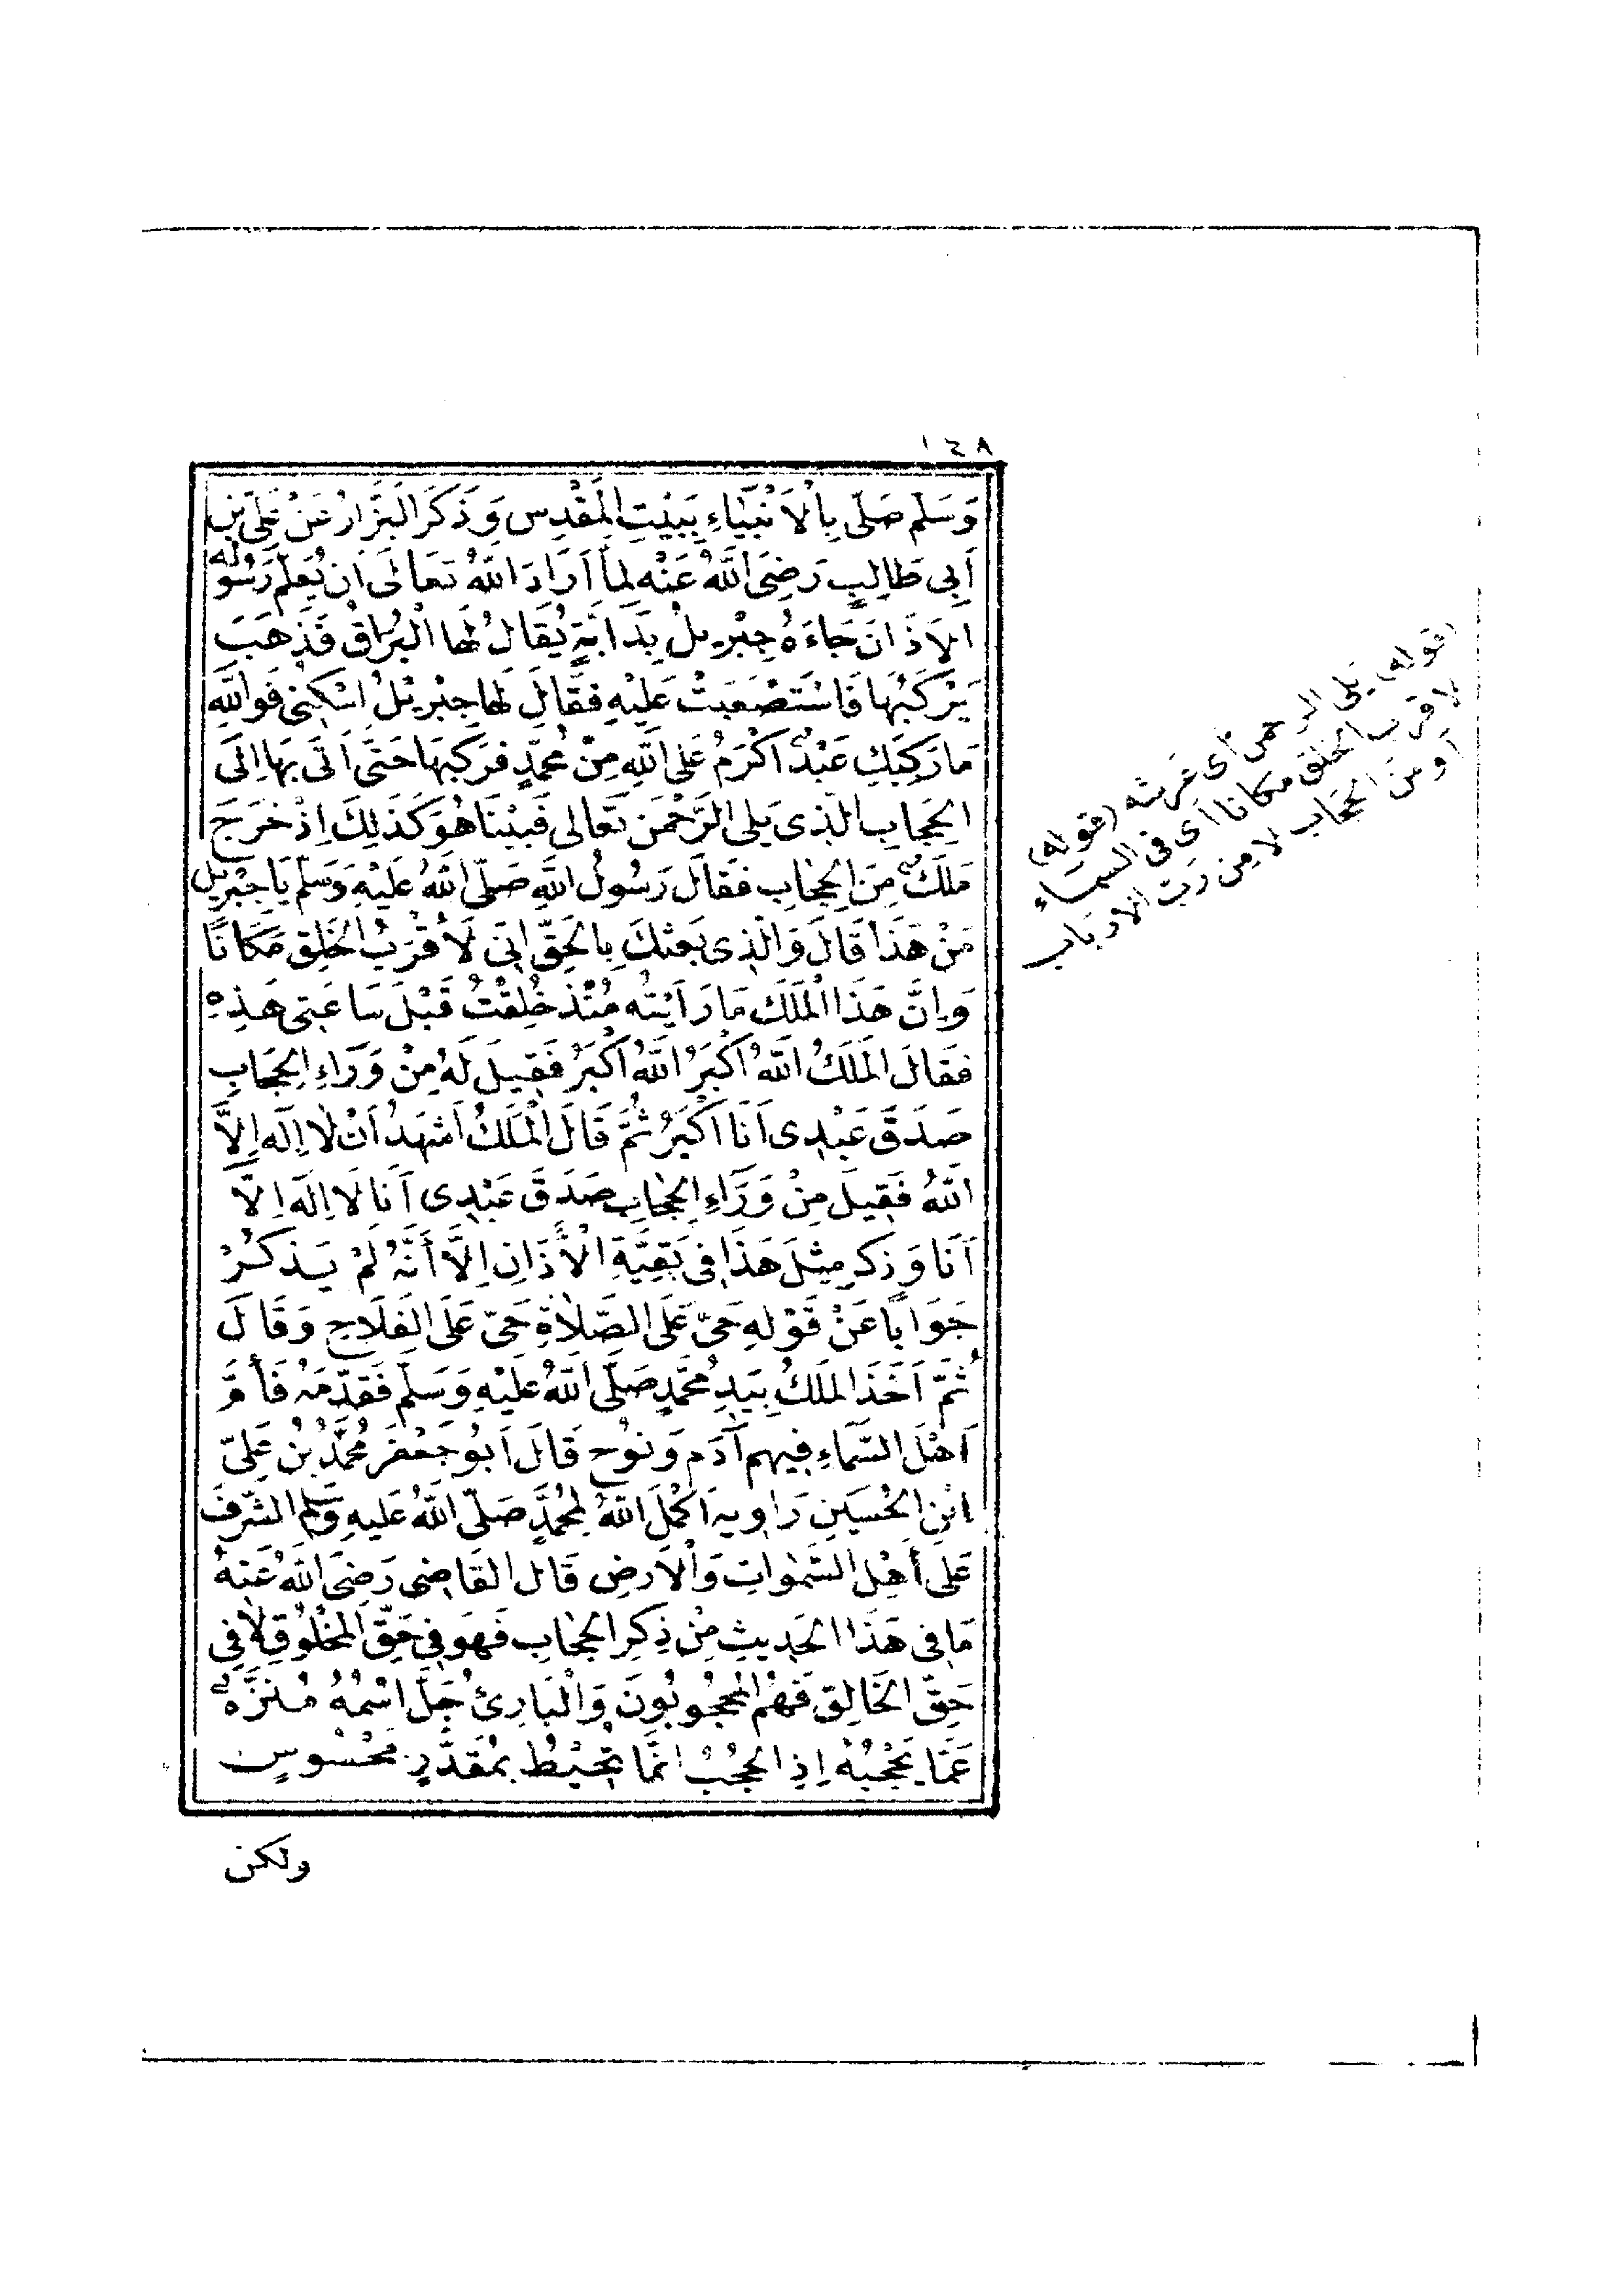 ١٤٨
وَسَلَّمَ صَلَّى بِالْاَنْبِيَاءِ بِبَيْتِ الْمَقْدِسِ وَذَكَرَ الْبَزَّارُ عَنْ عَلِيِّ بْنِ
اَبِى طَالِبٍ رَضِىَ اللّٰهُ عَنْهُ لَمَّا اَرَادَ اللّٰهُ تَعَالَى اَنْ يُعَلِّمَ رَسُولَهُ
الْاَذَانَ جَاءَهُ جِبْرِيلُ بِدَابَّةٍ يُقَالُ لَهَا الْبُرَاقُ فَذَهَبَ
يَرْكَبُهَا فَاسْتَصْعَبَتْ عَلَيْهِ فَقَالَ لَهَا جِبْرِيلُ اسْكُنِى فَوَاللّٰهِ
مَا رَكِبَكِ عَبْدٌ اَكْرَمُ عَلَى اللّٰهِ مِنْ مُحَمَّدٍ فَرَكِبَهَا حَتَّى اَتَى بِهَا اِلَى
الْحِجَابِ الَّذِى يَلِى الرَّحْمٰنَ تَعَالَى فَبَيْنَا هُوَ كَذَلِكَ اِذْ خَرَجَ
مَلَكٌ مِنَ الْحِجَابِ فَقَالَ رَسُولُ اللّٰهِ صَلَّى اللّٰهُ عَلَيْهِ وَسَلَّمَ يَا جِبْرِيلُ
مَنْ هَذَا قَالَ وَالَّذِى بَعَثَكَ بِالْحَقِّ اِنِّى لَاَقْرَبُ الْخَلْقِ مَكَانًا
وَاِنَّ هَذَا الْمَلَكَ مَا رَاَيْتُهُ مُنْذُ خُلِقْتُ قَبْلَ سَاعَتِى هَذِهِ
فَقَالَ الْمَلَكُ اللّٰهُ اَكْبَرُ اللّٰهُ اَكْبَرُ فَقِيلَ لَهُ مِنْ وَرَاءِ الْحِجَابِ
صَدَقَ عَبْدِى اَنَا اَكْبَرُ ثُمَّ قَالَ الْمَلَكُ اَشْهَدُ اَنْ لَا اِلَهَ اِلَّا
اللّٰهُ فَقِيلَ مِنْ وَرَاءِ الْحِجَابِ صَدَقَ عَبْدِى اَنَا لَا اِلَهَ اِلَّا
اَنَا وَذَكَرَ مِثْلَ هَذَا فِى بَقِيَّةِ الْأَذَانِ اِلَّا أَنَّهُ لَمْ يَذْكُرْ
جَوَابًا عَنْ قَوْلِهِ حَىَّ عَلَى الصَّلَاةِ حَىَّ عَلَى الْفَلَاحِ وَقَالَ
ثُمَّ اَخَذَ الْمَلَكُ بِيَدِ مُحَمَّدٍ صَلَّى اللّٰهُ عَلَيْهِ وَسَلَّمَ فَقَدَّمَهُ فَأَمَّ
اَهْلَ السَّمَاءِ فِيهِمْ آدَمُ وَنُوحٌ قَالَ اَبُو جَعْفَرٍ مُحَمَّدُ بْنُ عَلِىِّ
ابْنِ الْحُسَيْنِ رَاوِيهِ اَكْمَلَ اللّٰهُ لِمُحَمَّدٍ صَلَّى اللّٰهُ عَلَيْهِ وَسَلَّمَ الشَّرَفَ
عَلَى أَهْلِ السَّمٰوَاتِ وَالْاَرْضِ قَالَ الْقَاضِى رَضِىَ اللّٰهُ عَنْهُ
مَا فِى هَذَا الْحَدِيثِ مِنْ ذِكْرِ الْحِجَابِ فَهُوَ فِى حَقِّ الْمَخْلُوقِ لَا فِى
حَقِّ الْخَالِقِ فَهُمُ الْمَحْجُوبُونَ وَالْبَارِئُ جَلَّ اسْمُهُ مُنَزَّهٌ
عَمَّا يَحْجُبُهُ اِذِ الْحُجُبُ اِنَّمَا تُحِيطُ بِمُقَدَّرٍ مَحْسُوسٍ
ولكن
(قوله) يَلى الرحمن اى عَرشه (قوله)
لاقرب الخلق مكانا اَى فى السماء
اَو منَ الحجاب لا مِن رَبّ الارباب